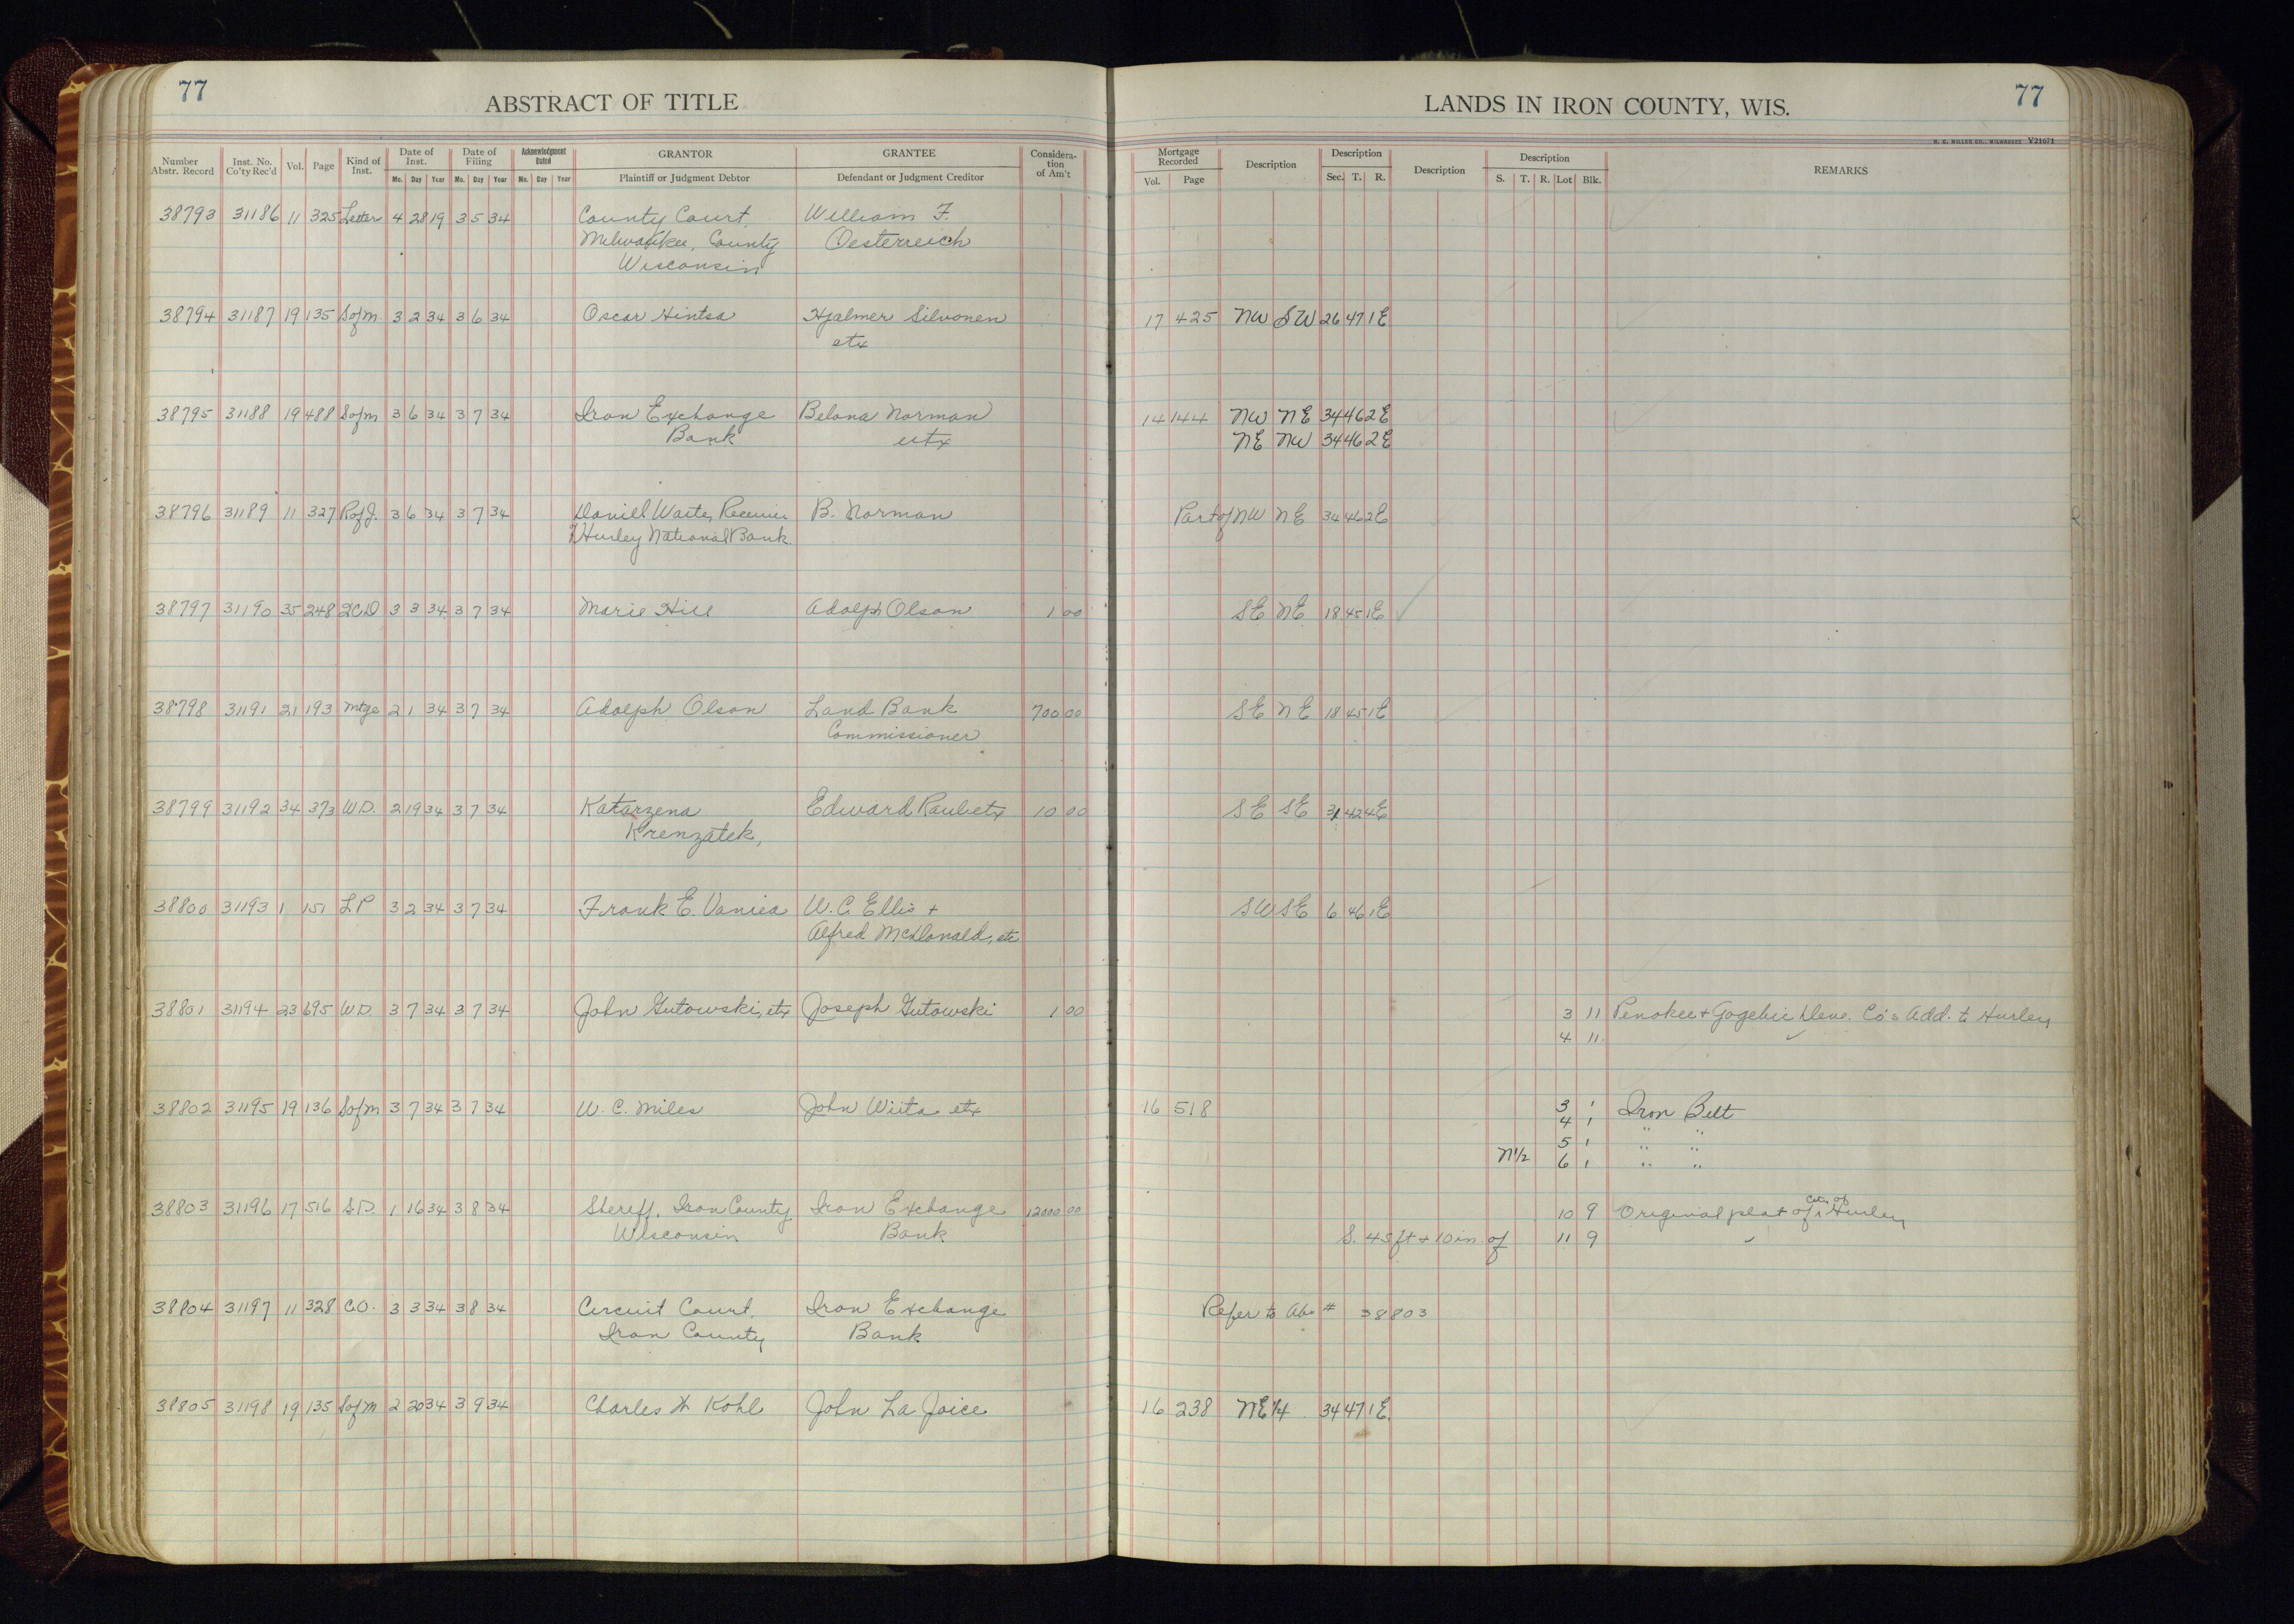 77
ABSTRACT OF TITLE
LANDS IN IRON COUNTY, WIS.
77
H. C. MILLER CO., MILWAUKEE V21671
Number Abstr. Record Inst. No. Co'ty Rec'd Vol. Page Kind of Inst. Date of Inst. Mo. Day Year Date of Filing Mo. Day Year Acknowledgment Dated Mo. Day Year GRANTOR Plaintiff or Judgment Debtor GRANTEE Defendant or Judgment Creditor Consideration of Am't Mortgage Recorded Vol. Page Description Description Sec. T. R. Description Description S. T. R. Lot Blk. REMARKS
38793 31186 11 325 Letter 4 28 19 3 5 34 County Court William F.
Milwaukee, County Oesterreich
Wisconsin
38794 31187 19 135 Sofm 3 2 34 3 6 34 Oscar Hintsa Hjalmer Silvonen 17 425 NW SW 26 47 1E
etx
38795 31188 19 488 Sofm 3 6 34 3 7 34 Iron Exchange Belona Norman 14 144 NW NE 34 46 2E
Bank utx NE NW 34 46 2E
38796 31189 11 327 RofJ. 3 6 34 3 7 34 Daniel Waite, Receiver B. Norman Part of NW NE 34 46 2E
Hurley National Bank.
38797 31190 35 248 2CD 3 3 34 3 7 34 Marie Hill Adolph Olson 1 00 SE NE 18 45 1E
38798 31191 21 193 Mtge 2 1 34 3 7 34 Adolph Olson Land Bank 700 00 SE NE 18 45 1E
Commissioner
38799 31192 34 373 W.D. 2 19 34 3 7 34 Katarzena Edward Raubetx 10 00 SE SE 31 42 4E
Krenzatek,
38800 31193 1 151 LP 3 2 34 3 7 34 Frank E. Vaniea W. C. Ellis + SW SE 6 46 1E
Alfred McDonald, etc
38801 31194 23 695 W.D. 3 7 34 3 7 34 John Gutowski, etx Joseph Gutowski 1 00 3 11 Penokee + Gogebic Deve. Co's Add. to Hurley
4 11
38802 31195 19 136 Sofm 3 7 34 3 7 34 W. C. Miles John Wiita etx 16 518 3 1 Iron Belt
4 1 " "
5 1 " "
N½ 6 1 " "
38803 31196 17 516 S.D. 1 16 34 3 8 34 Sheriff, Iron County Iron Exchange 12000 00 10 9 Original plat of City of Hurley
Wisconsin Bank S. 45 ft + 10 in. of 11 9
38804 31197 11 328 C.O. 3 3 34 3 8 34 Circuit Court Iron Exchange Refer to Abs # 38803
Iron County Bank
38805 31198 19 135 Sofm 2 20 34 3 9 34 Charles H Kohl John La Joice 16 238 NE¼ 34 47 1E.